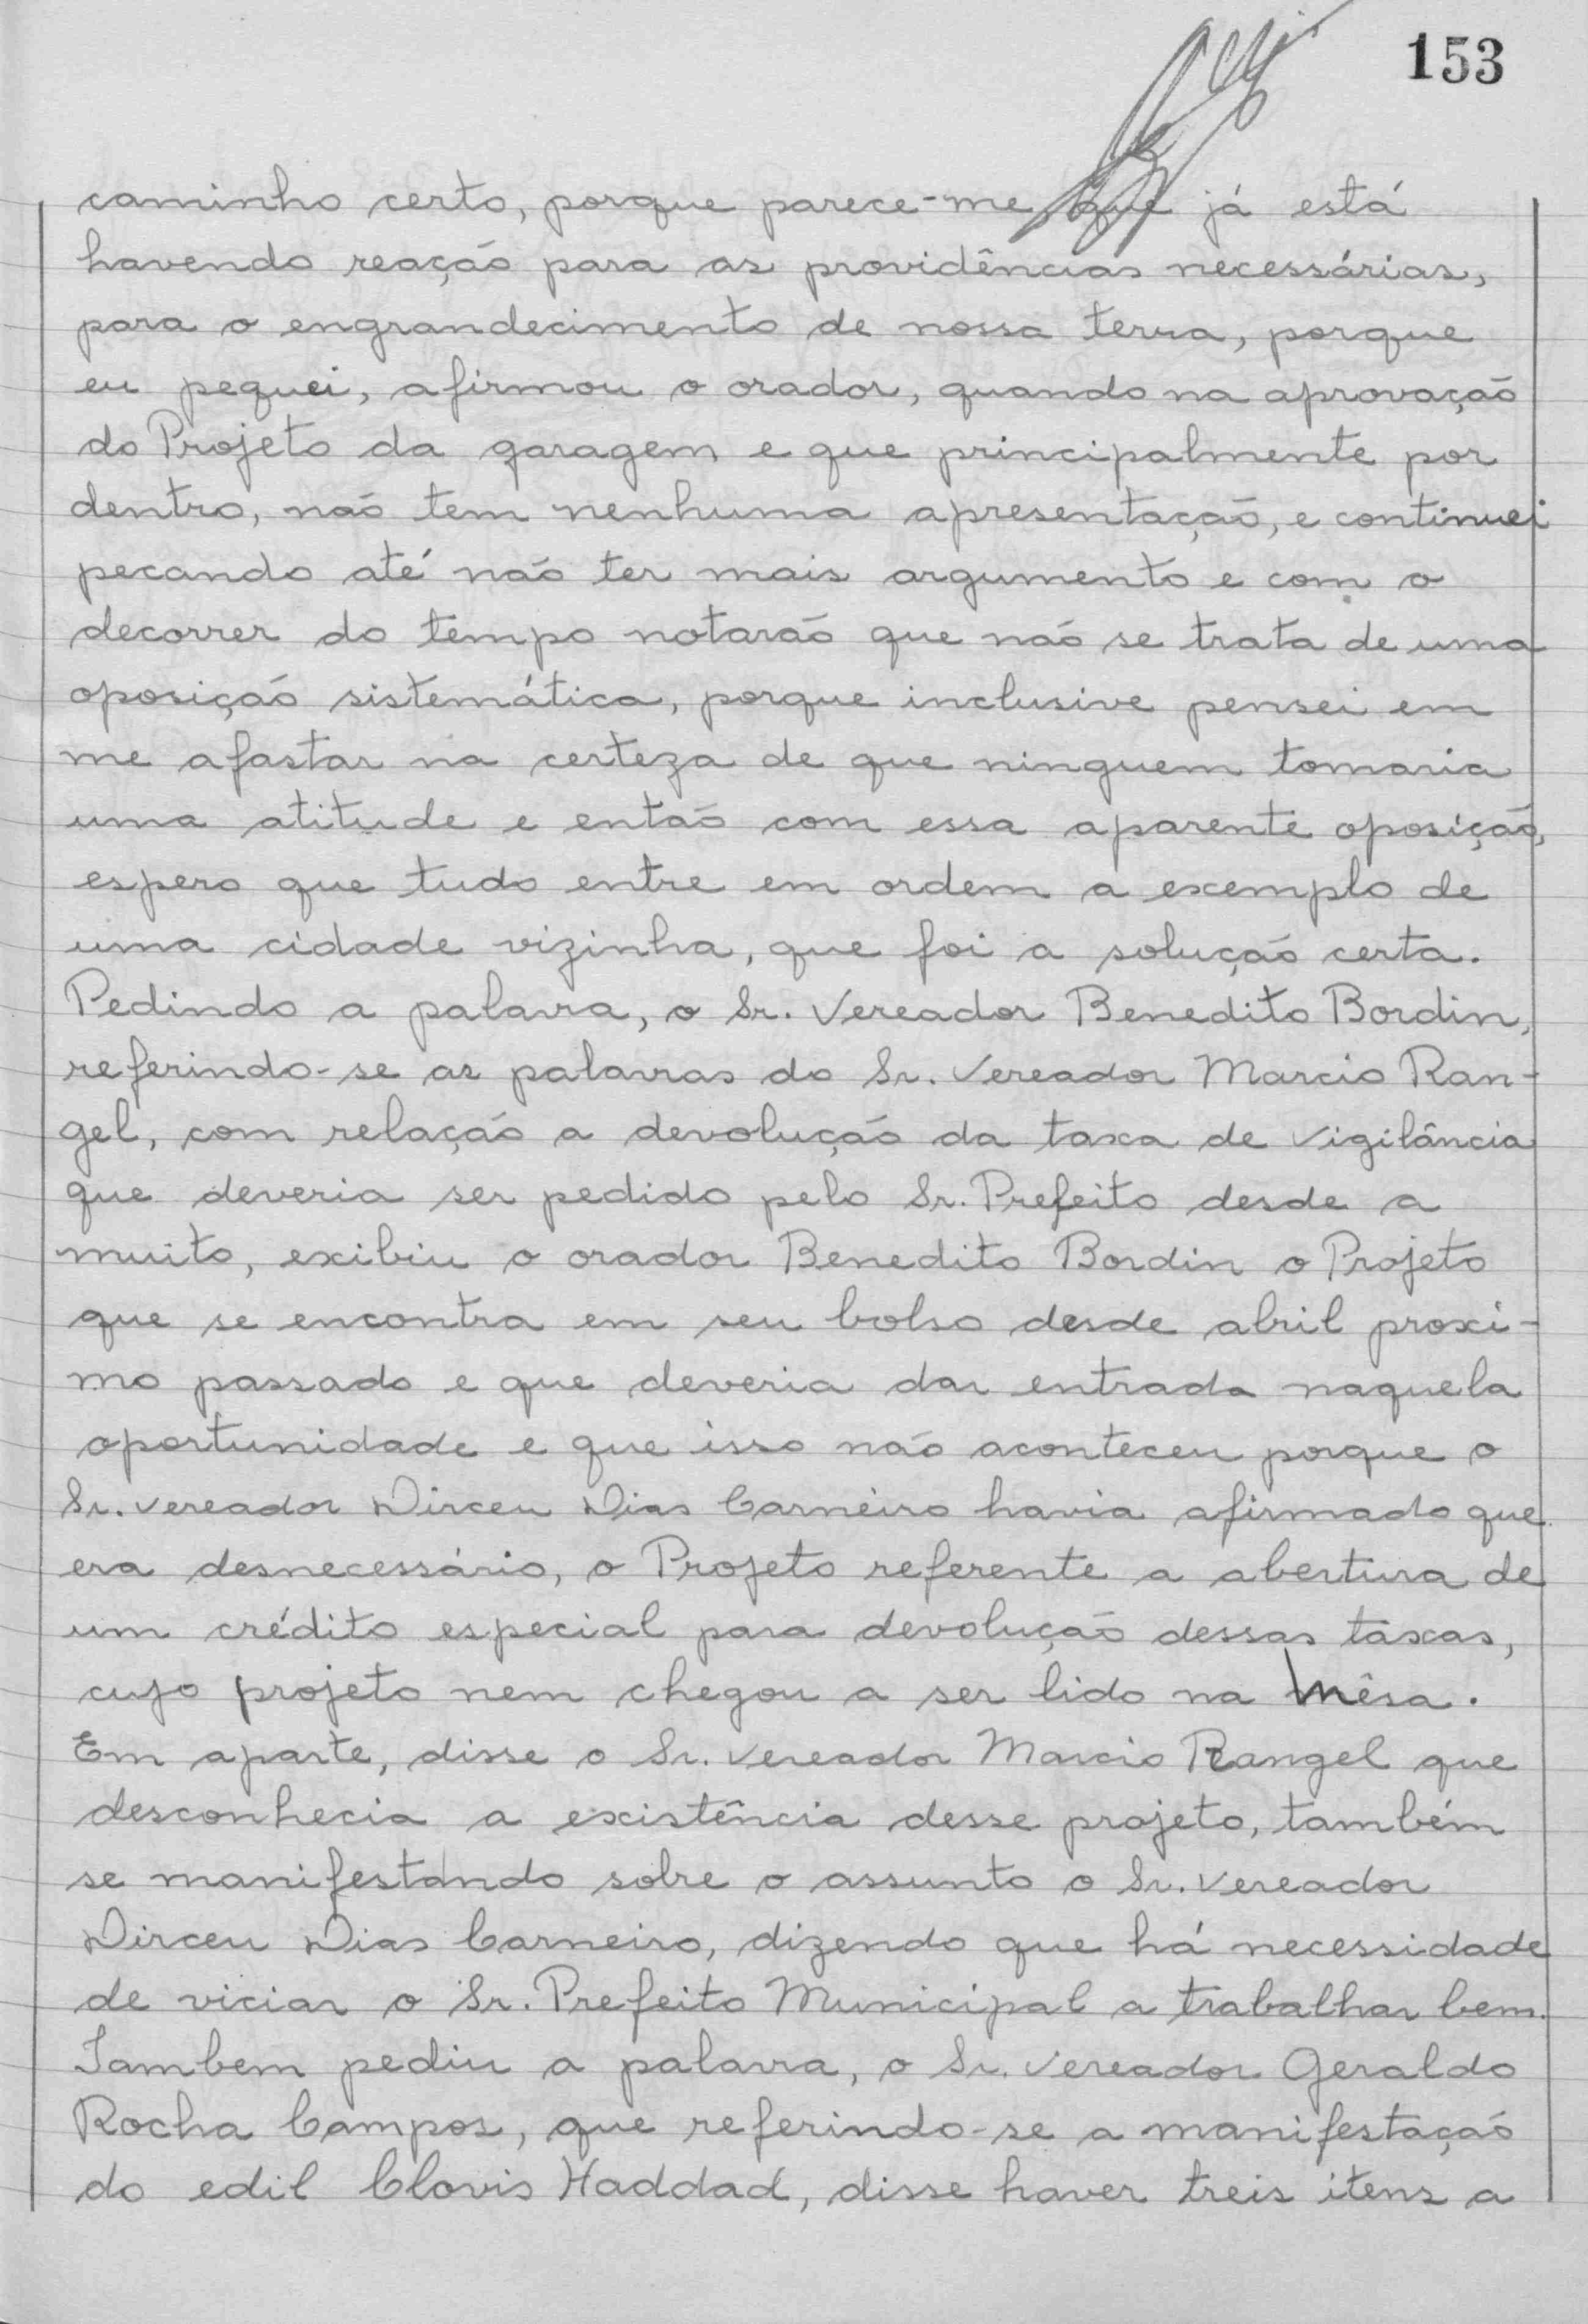 153
caminho certo, porque parece-me que já está
havendo reação para as providências necessárias,
para o engrandecimento de nossa terra, porque
eu pequei, afirmou o orador, quando na aprovação
do Projeto da garagem e que principalmente por
dentro, não tem nenhuma apresentação, e continuei
pecando até não ter mais argumento e com o
decorrer do tempo notarão que não se trata de uma
oposição sistemática, porque inclusive pensei em
me afastar na certeza de que ninguem tomaria
uma atitude e então com essa aparente oposição,
espero que tudo entre em ordem a exemplo de
uma cidade vizinha, que foi a solução certa.
Pedindo a palavra, o Sr. Vereador Benedito Bordin,
referindo-se as palavras do Sr. Vereador Marcio Ran-
gel, com relação a devolução da taxa de Vigilância
que deveria ser pedido pelo Sr. Prefeito desde a
muito, exibiu o orador Benedito Bordin o Projeto
que se encontra em seu bolso desde abril proxi-
mo passado e que deveria dar entrada naquela
oportunidade e que isso não aconteceu porque o
Sr. Vereador Dirceu Dias Carneiro havia afirmado que
era desnecessário, o Projeto referente a abertura de
um crédito especial para devolução dessas taxas,
cujo projeto nem chegou a ser lido na Mêsa.
Em aparte, disse o Sr. Vereador Marcio Rangel que
desconhecia a existência desse projeto, também
se manifestando sobre o assunto o Sr. Vereador
Dirceu Dias Carneiro, dizendo que há necessidade
de viciar o Sr. Prefeito Municipal a trabalhar bem.
Tambem pediu a palavra, o Sr. Vereador Geraldo
Rocha Campos, que referindo-se a manifestação
do edil Clovis Haddad, disse haver treis itens a